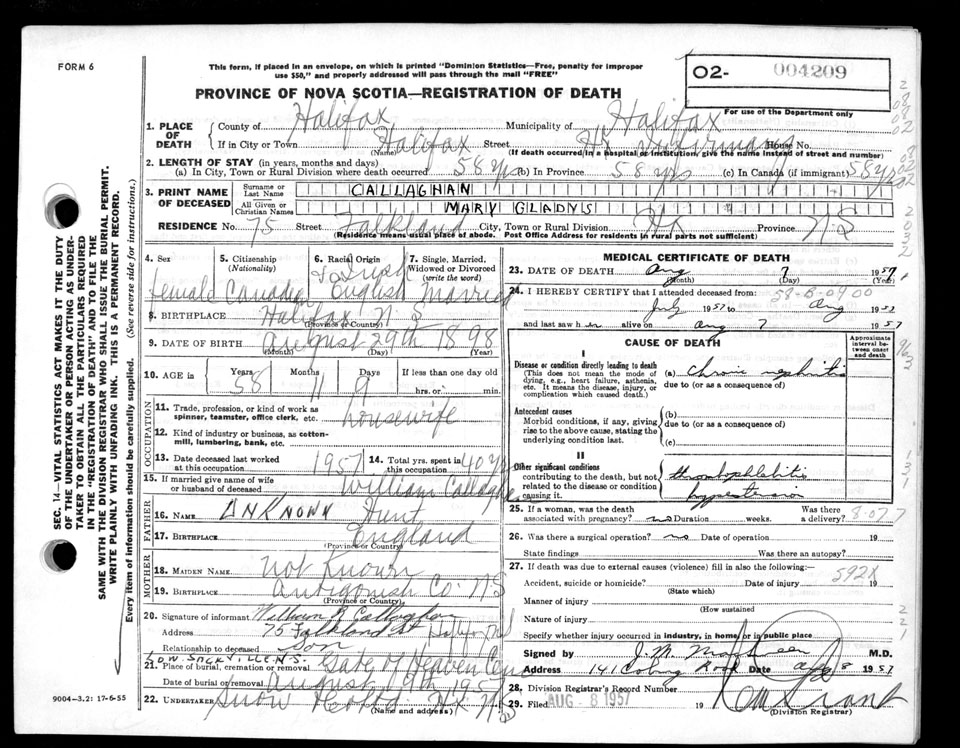 FORM 6
This form, if placed in an envelope, on which is printed "Dominion Statistics—Free, penalty for improper
use $50," and properly addressed will pass through the mail "FREE"
02- 004209
For use of the Department only
PROVINCE OF NOVA SCOTIA—REGISTRATION OF DEATH
1. PLACE OF DEATH { County of Halifax Municipality of Halifax
If in City or Town Halifax Street Hx Infirmary House No.
(Name) (If death occurred in a hospital or institution, give the name instead of street and number)
2. LENGTH OF STAY (in years, months and days)
(a) In City, Town or Rural Division where death occurred 58 yrs (b) In Province 58 yrs (c) In Canada (if immigrant) 58 yrs
3. PRINT NAME OF DECEASED { Surname or Last Name CALLAGHAN
All Given or Christian Names MARY GLADYS
RESIDENCE No. 75 Street Falkland City, Town or Rural Division Hx Province NS
(Residence means usual place of abode. Post Office Address for residents in rural parts not sufficient)
4. Sex female
5. Citizenship (Nationality) Canadian
6. Racial Origin English
7. Single, Married, Widowed or Divorced (write the word) Married
8. BIRTHPLACE Halifax N S
(Province or Country)
9. DATE OF BIRTH August 29th 1898
(Month) (Day) (Year)
10. AGE in { Years 58 Months 11 Days 9 If less than one day old
hrs. or min.
OCCUPATION
11. Trade, profession, or kind of work as spinner, teamster, office clerk, etc. housewife
12. Kind of industry or business, as cotton-mill, lumbering, bank, etc.
13. Date deceased last worked at this occupation 1957 14. Total yrs. spent in this occupation 40 yrs
15. If married give name of wife or husband of deceased William Callaghan
FATHER
16. Name UNKNOWN Hunt
17. Birthplace England
(Province or Country)
MOTHER
18. Maiden Name Not Known
19. Birthplace Antigonish Co NS
(Province or Country)
20. Signature of informant William R Callaghan
Address 75 Falkland St Halifax NS
Relationship to deceased son
LOW. SACKVILLE N.S.
21. Place of burial, cremation or removal Gate of Heaven Cem
Date of burial or removal August 9th 1957
22. Undertaker Snow Hx NS
(Name and address)
MEDICAL CERTIFICATE OF DEATH
23. DATE OF DEATH Aug 7 1957
(Month) (Day) (Year)
58-B-0900
24. I HEREBY CERTIFY that I attended deceased from:
July 1957 to Aug 1957
and last saw h er alive on Aug 7 1957
CAUSE OF DEATH
Approximate interval between onset and death
I
Disease or condition directly leading to death
(This does not mean the mode of dying, e.g., heart failure, asthenia, etc. It means the disease, injury, or complication which caused death.)
(a) Chronic nephritis
due to (or as a consequence of)
Antecedent causes
Morbid conditions, if any, giving rise to the above cause, stating the underlying condition last.
(b)
due to (or as a consequence of)
(c)
II
Other significant conditions contributing to the death, but not related to the disease or condition causing it.
thrombophlebitis
hypertension
25. If a woman, was the death associated with pregnancy? no Duration weeks. Was there a delivery?
8-07.7
26. Was there a surgical operation? no Date of operation 19
State findings Was there an autopsy?
27. If death was due to external causes (violence) fill in also the following:
592X
Accident, suicide or homicide? Date of injury 19
(State which)
Manner of injury
(How sustained
Nature of injury
Specify whether injury occurred in industry, in home, or in public place
Signed by J. M. M.D.
Address 141 Coburg Road Date Aug 8 1957
28. Division Registrar's Record Number
29. Filed AUG - 8 1957 19
(Division Registrar)
SEC. 14—VITAL STATISTICS ACT MAKES IT THE DUTY
OF THE UNDERTAKER OR PERSON ACTING AS UNDER-
TAKER TO OBTAIN ALL THE PARTICULARS REQUIRED
IN THE "REGISTRATION OF DEATH" AND TO FILE THE
SAME WITH THE DIVISION REGISTRAR WHO SHALL ISSUE THE BURIAL PERMIT.
WRITE PLAINLY WITH UNFADING INK. THIS IS A PERMANENT RECORD.
Every item of information should be carefully supplied. (See reverse side for instructions.)
9004—3.2: 17-6-55